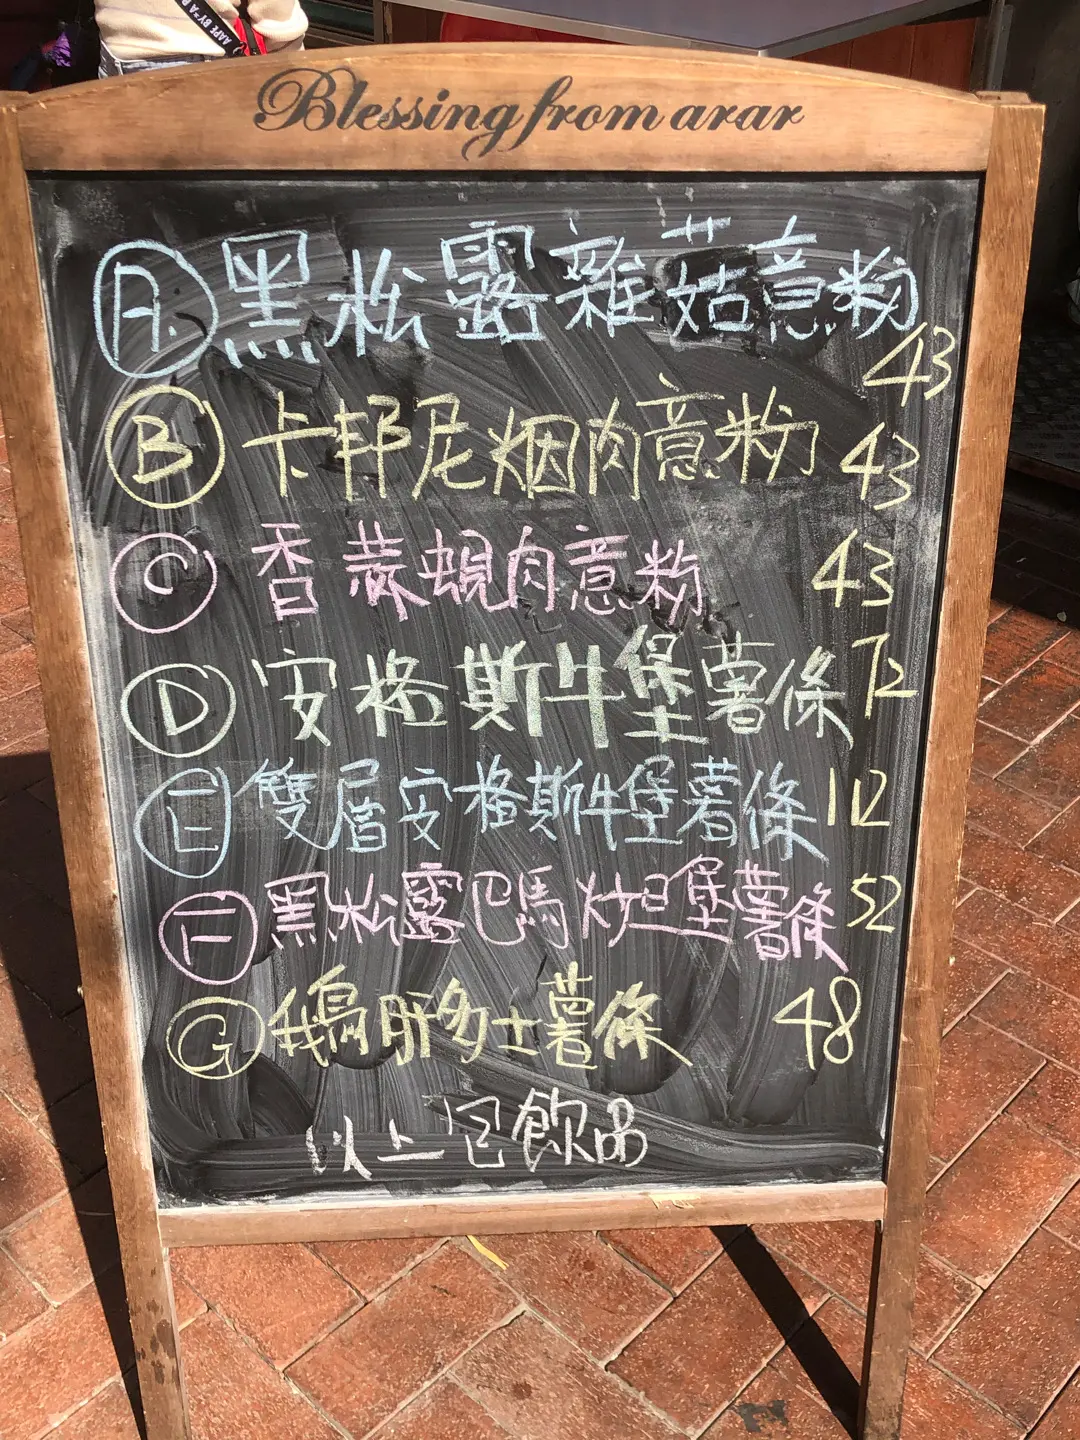 AAPE BY *A B
Blessing from arar
A. 黑松露雜菇意粉 43
B 卡邦尼烟肉意粉 43
C 香蒜蜆肉意粉 43
D 安格斯牛堡薯條 72
E 雙層安格斯牛堡薯條 112
F 黑松露巴馬火旦堡薯條 52
G 鵝肝多士薯條 48
以上包飲品